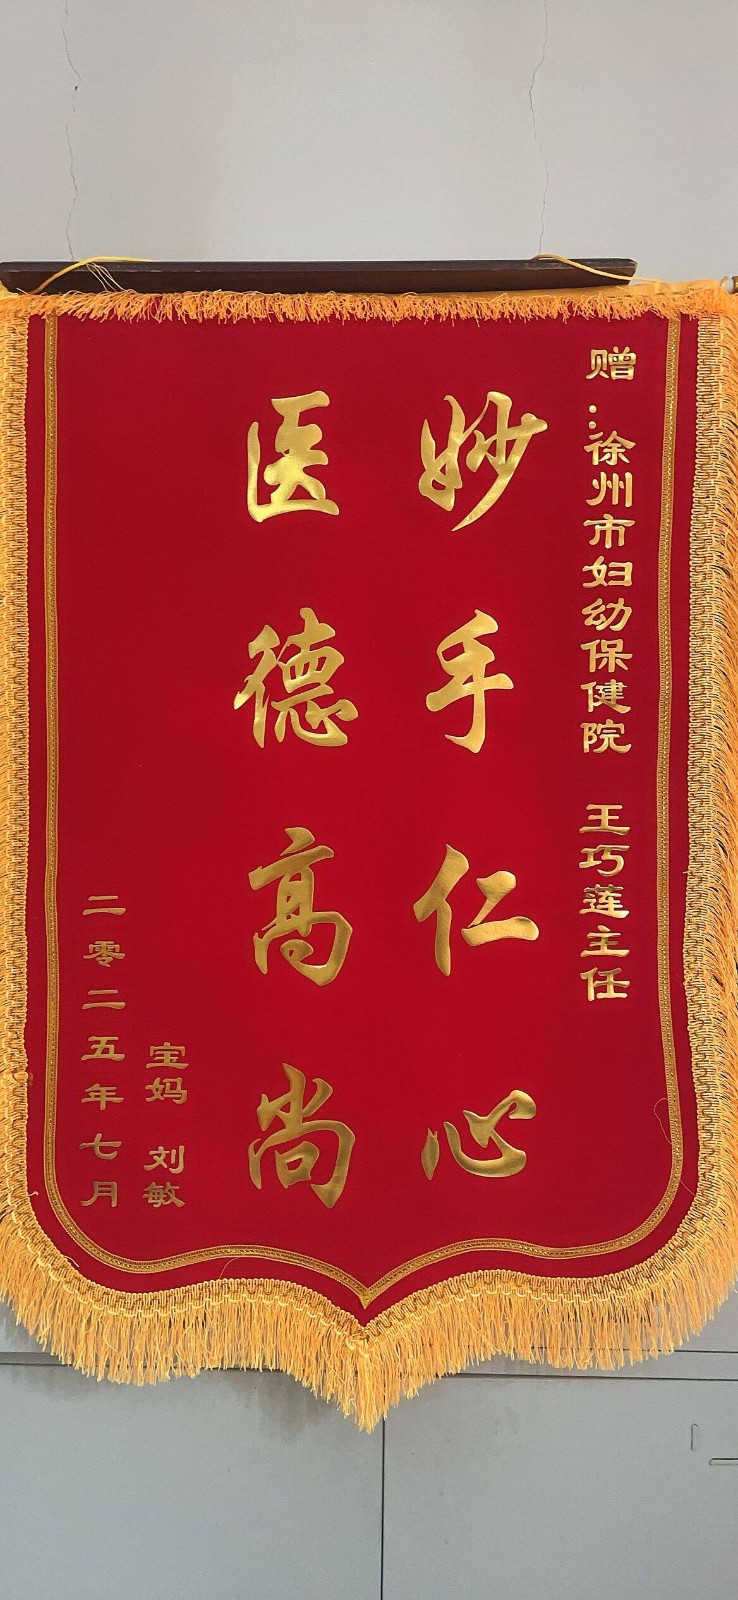 赠：徐州市妇幼保健院 王巧莲主任
妙手仁心
医德高尚
宝妈 刘敏
二零二五年七月